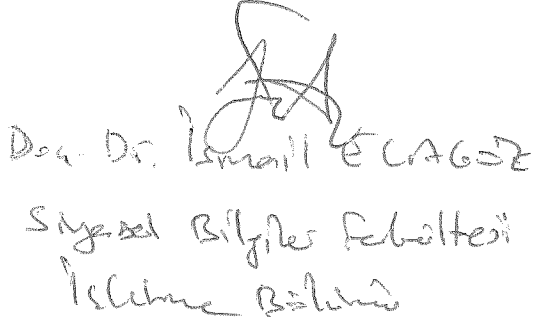 Doç. Dr. İsmail ELAGÖZ
Siyasal Bilgiler Fakültesi
İşletme Bölümü